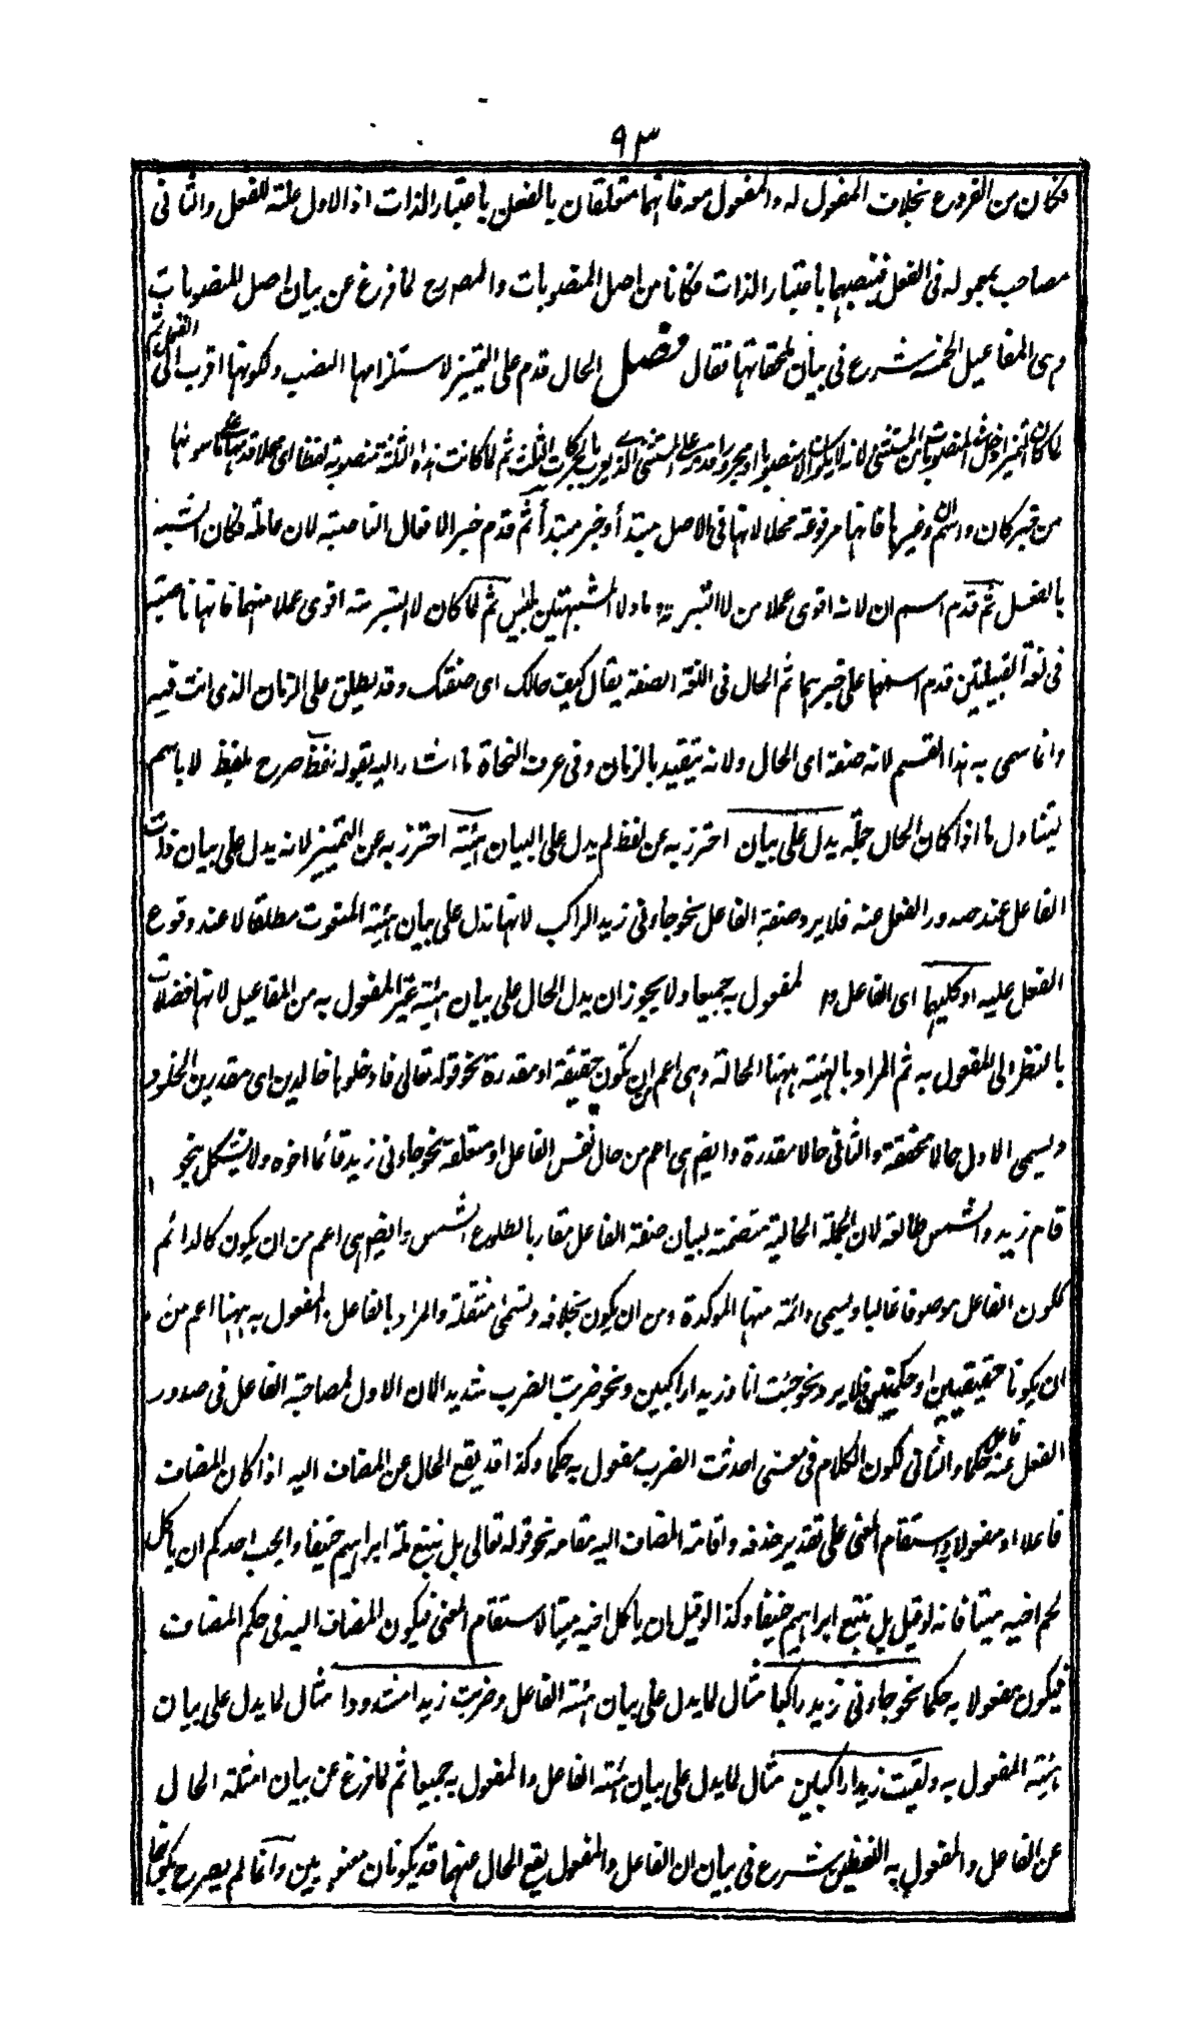 ٩٣
فكان من الفروع بخلاف المفعول له والمفعول معه فانهما متعلقان بالفعل باعتبار الذات اذ الاول علة للفعل والثانى
مصاحب بمعموله فى الفعل فنصبهما باعتبار الذات فكانا من اصل المنصوبات والمصرح لما فرغ عن بيان اصل المنصوبات
وهى المفاعيل الخمسة شرع فى بيان ملحقاتها فقال فصل الحال قدم على التمييز لاستلزامها النصب ولكونها اقرب الى
لما كان التمييز ادخل فى المنصوبات من المستثنى لانه لا يكون الا منصوبا او مجرورا قدمه على المستثنى الذى يعرب بالحركات الثلث ثم لما كانت هذه الثلثة منصوبة لفظا او محلا قدمها على ما سواها
من خبر كان واسم ان وغيرها فانها مرفوعة محلا لانها فى الاصل مبتدأ وخبر مبتدأ ثم قدم خبر الافعال الناصبة لان عاملة فكان الشبه
بالفعل ثم قدم اسم ان لانه اقوى عملا من لا التبرية وما ولا المشبهتين بليس ثم لما كان لا التبرية اقوى عملا منهما فانها ناصبة
فى لغة القبيلتين قدم اسمها على خبرهما ثم الحال فى اللغة الصفة يقال كيف حالك اى صفتك وقد يطلق على الزمان الذى انت فيه
وانما سمى به هذا القسم لانه صفة اى الحال ولانه يتقيد بالزمان وفى عرف النحاة ما اشار اليه بقوله لفظ صرح بلفظ لا باسم
ليتناول ما اذا كان الحال جملة يدل على بيان احترز به عن لفظ لم يدل على البيان هيئة احترز به عن التمييز لانه يدل على بيان ذات
الفاعل عند صدور الفعل عنه فلا يرد صفة الفاعل نحو جاءنى زيد الراكب لانها تدل على بيان هيئة المنعوت مطلقا لا عند وقوع
الفعل عليه او كليهما اى الفاعل والمفعول به جميعا ولا يجوز ان يدل الحال على بيان هيئة غير المفعول به من المفاعيل لانها فضلات
بالنظر الى المفعول به ثم المراد بالهيئة ههنا الحالة وهى اعم من ان تكون حقيقة او مقدرة نحو قوله تعالى فادخلوها خالدين اى مقدرين الخلود
ويسمى الاول حالا محققة والثانى حالا مقدرة وايضا هى اعم من حال نفس الفاعل او متعلقه نحو جاءنى زيد قائما اخوه ولا يشكل بنحو
قام زيد والشمس طالعة لان الجملة الحالية متضمنة لبيان صفة الفاعل مقارنا بطلوع الشمس وايضا هى اعم من ان يكون كالدائم
لكون الفاعل موصوفا غالبا ويسمى دائمة منها الموكدة ومن ان يكون بخلافه وتسمى منتقلة والمراد بالفاعل والمفعول به ههنا اعم من
ان يكونا حقيقيين او حكميين فلا يرد نحو جئت انا وزيدا راكبين ونحو ضربت الضرب شديدا لان الاول لمصاحبة الفاعل فى صدور
الفعل عنه فاعل حكما والثانى لكون الكلام فى معنى احدثت الضرب مفعول به حكما وكذا قد يقع الحال عن المضاف اليه اذا كان المضاف
فاعلا او مفعولا واستقام المعنى على تقدير حذفه واقامة المضاف اليه مقامه نحو قوله تعالى بل نتبع ملة ابراهيم حنيفا وايحب احدكم ان ياكل
لحم اخيه ميتا فانه لو قيل بل نتبع ابراهيم حنيفا وكذا لو قيل ان ياكل اخيه ميتا لاستقام المعنى فيكون المضاف اليه فى حكم المضاف
فيكون مفعولا به حكما نحو جاءنى زيد راكبا مثال لما يدل على بيان هيئة الفاعل وضربت زيدا مشدودا مثال لما يدل على بيان
هيئة المفعول به ولقيت زيدا راكبين مثال لما يدل على بيان هيئة الفاعل والمفعول به جميعا ثم لما فرغ عن بيان امثلة الحال
عن الفاعل والمفعول به اللفظين شرع فى بيان ان الفاعل والمفعول يقع الحال عنهما قد يكونان معنويين وانما لم يصرح بكونهما